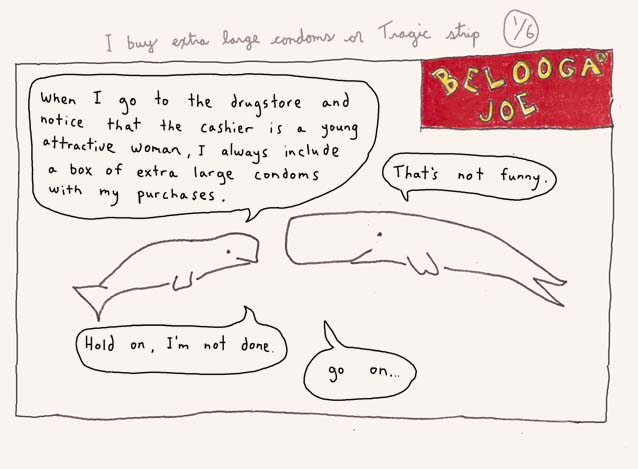 I buy extra large condoms or Tragic strip 1/6
BELOOGA
JOE
When I go to the drugstore and
notice that the cashier is a young
attractive woman, I always include
a box of extra large condoms
with my purchases.
That's not funny.
Hold on, I'm not done.
go on...